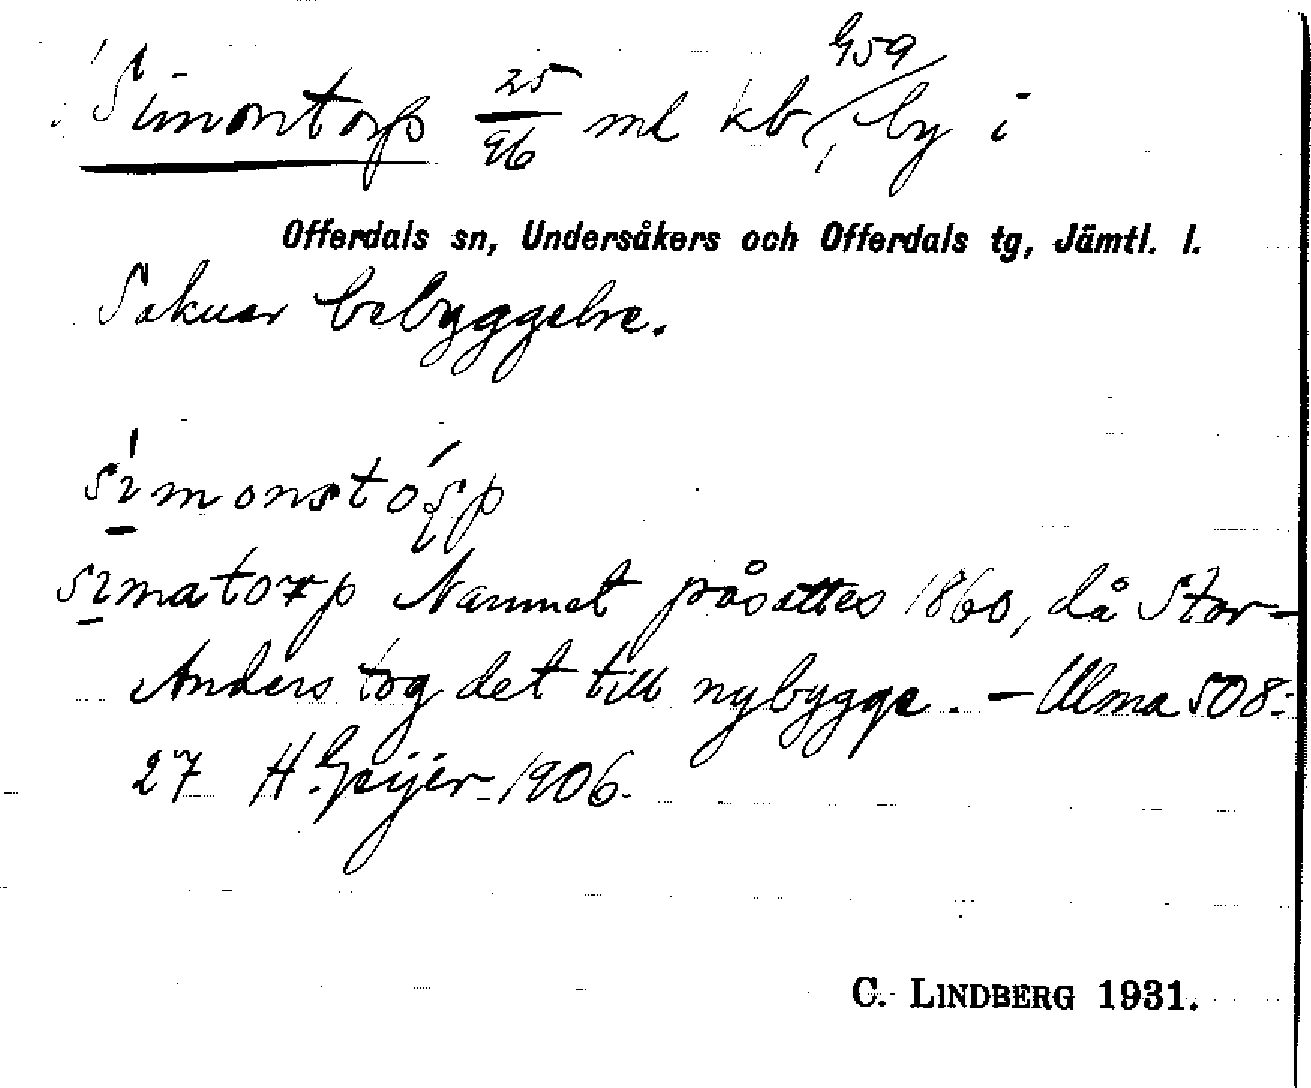 Simontorp 25/96 ml kb, by i
G59
Offerdals sn, Undersåkers och Offerdals tg, Jämtl. l.
Saknar bebyggelse.
simonstórp
simatorp Namnet påsattes 1860, då Stor-
Anders tog det till nybygge. – Ulma 508:
27 H. Geijer 1906.
C. LINDBERG 1931.